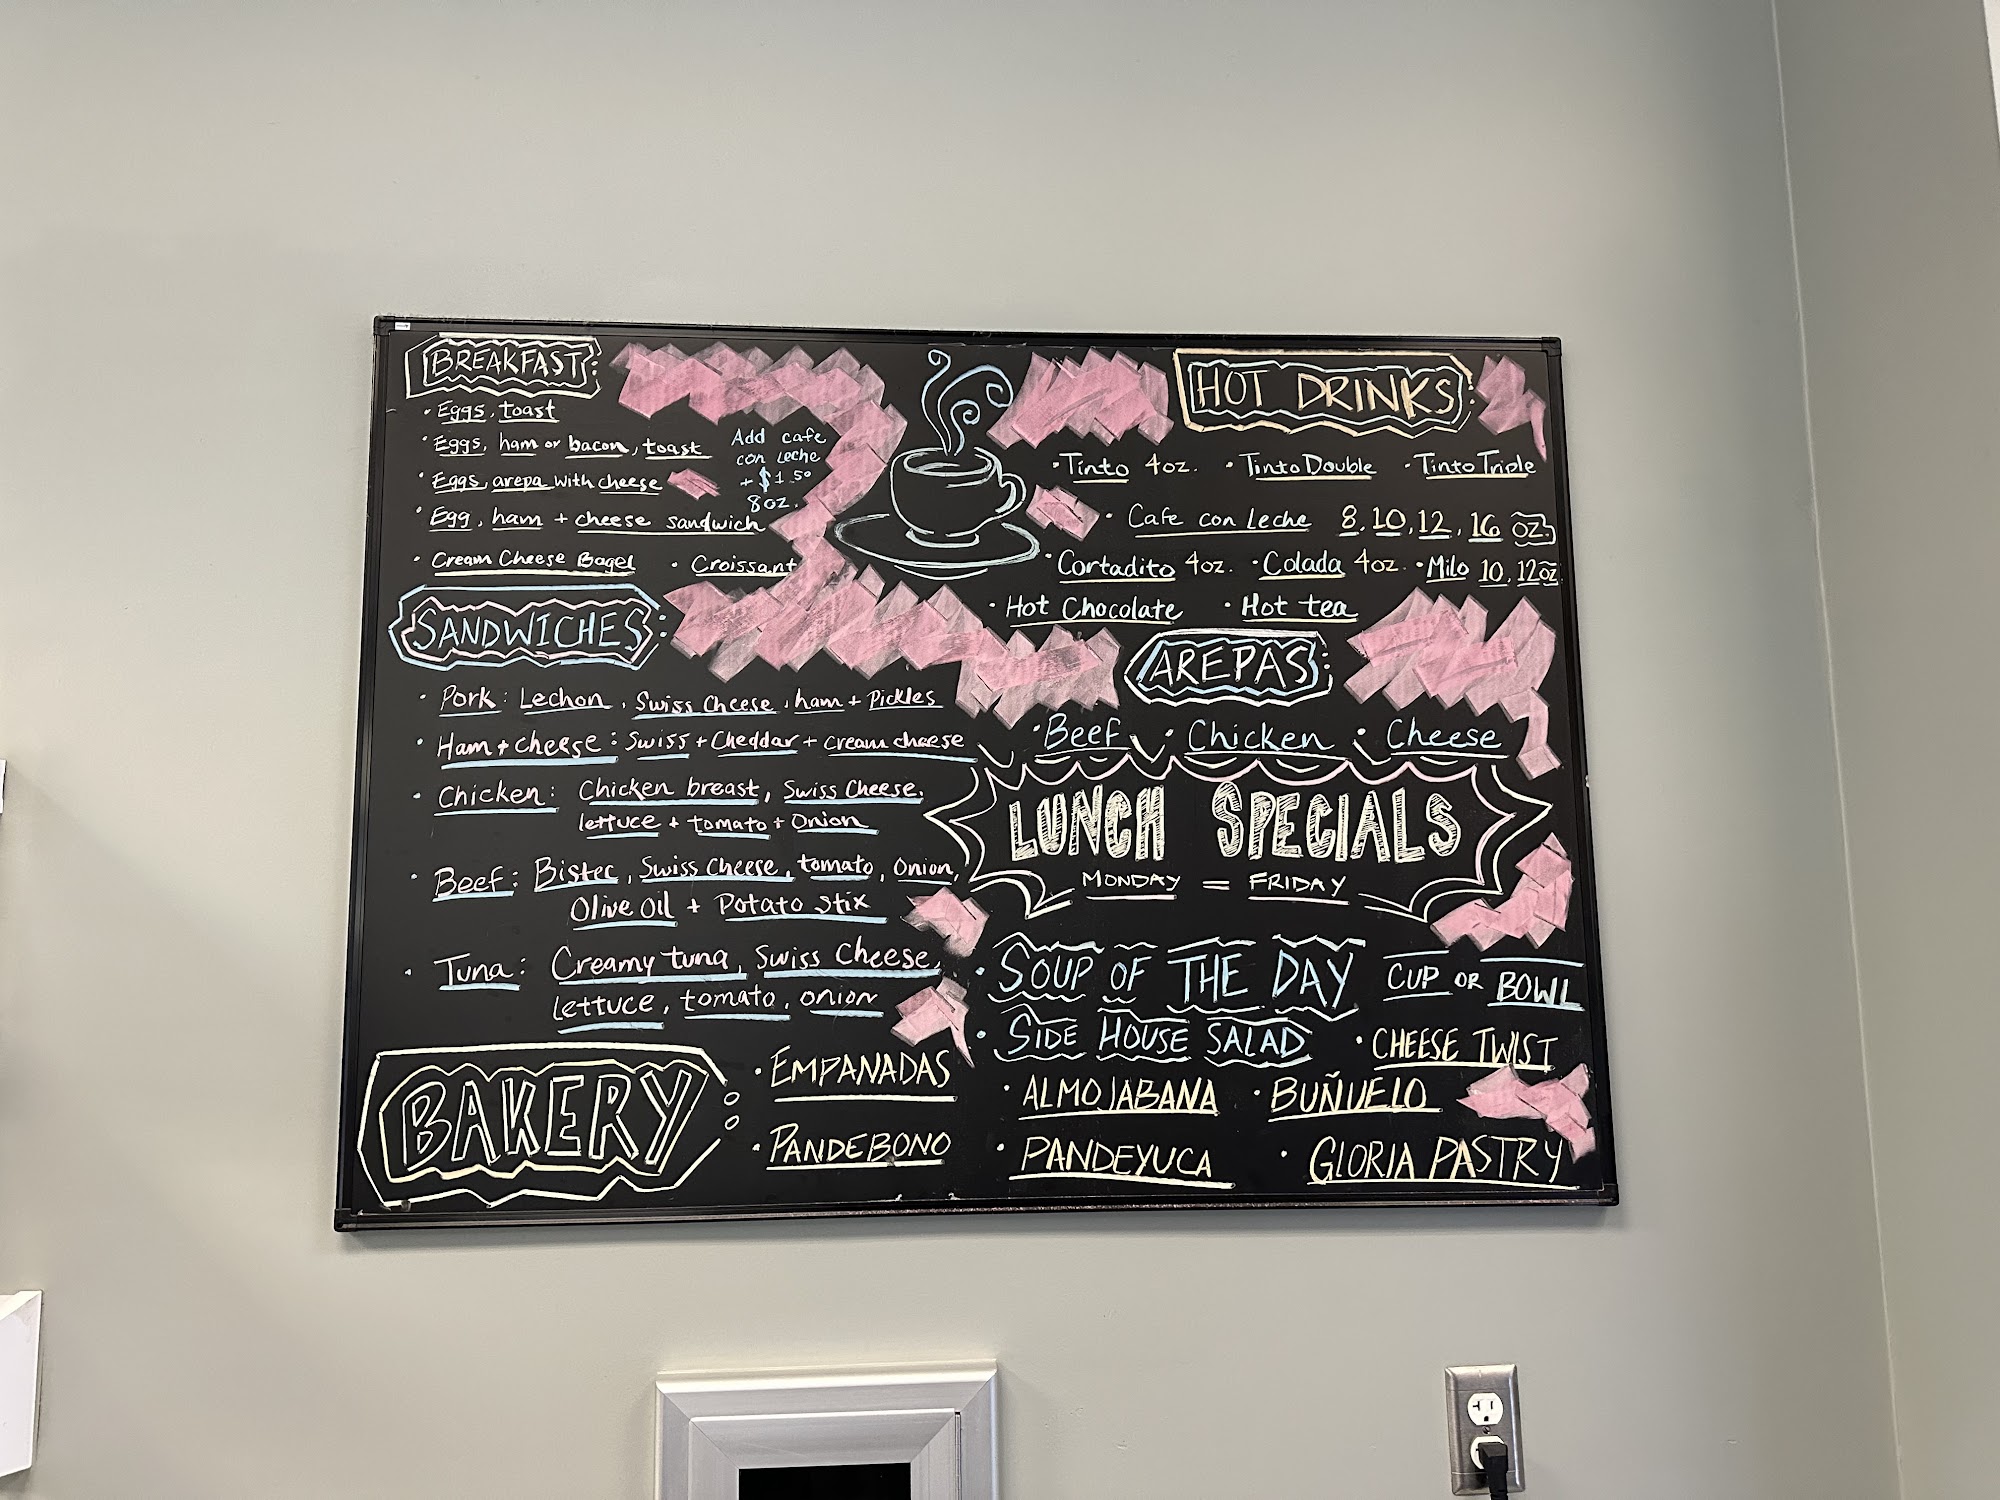 BREAKFAST:
• Eggs, toast
• Eggs, ham or bacon, toast
• Eggs, arepa with cheese
• Egg, ham + cheese sandwich
• Cream Cheese Bagel • Croissant
Add cafe
con leche
+ $1.50
8oz.
SANDWICHES:
• Pork: Lechon, Swiss Cheese, ham + Pickles
• Ham + cheese: Swiss + Cheddar + cream cheese
• Chicken: Chicken breast, Swiss Cheese,
lettuce + tomato + Onion
• Beef: Bistec, Swiss Cheese, tomato, Onion,
Olive Oil + Potato stix
• Tuna: Creamy tuna, Swiss Cheese,
lettuce, tomato, onion
HOT DRINKS:
• Tinto 4oz. • Tinto Double • Tinto Triple
• Cafe con Leche 8, 10, 12, 16 oz.
• Cortadito 4oz. • Colada 4oz. • Milo 10, 12oz
• Hot Chocolate • Hot tea
AREPAS:
• Beef • Chicken • Cheese
LUNCH SPECIALS
MONDAY = FRIDAY
• SOUP OF THE DAY CUP OR BOWL
• SIDE HOUSE SALAD
BAKERY:
• EMPANADAS
• CHEESE TWIST
• ALMOJABANA • BUÑUELO
• PANDEBONO • PANDEYUCA • GLORIA PASTRY